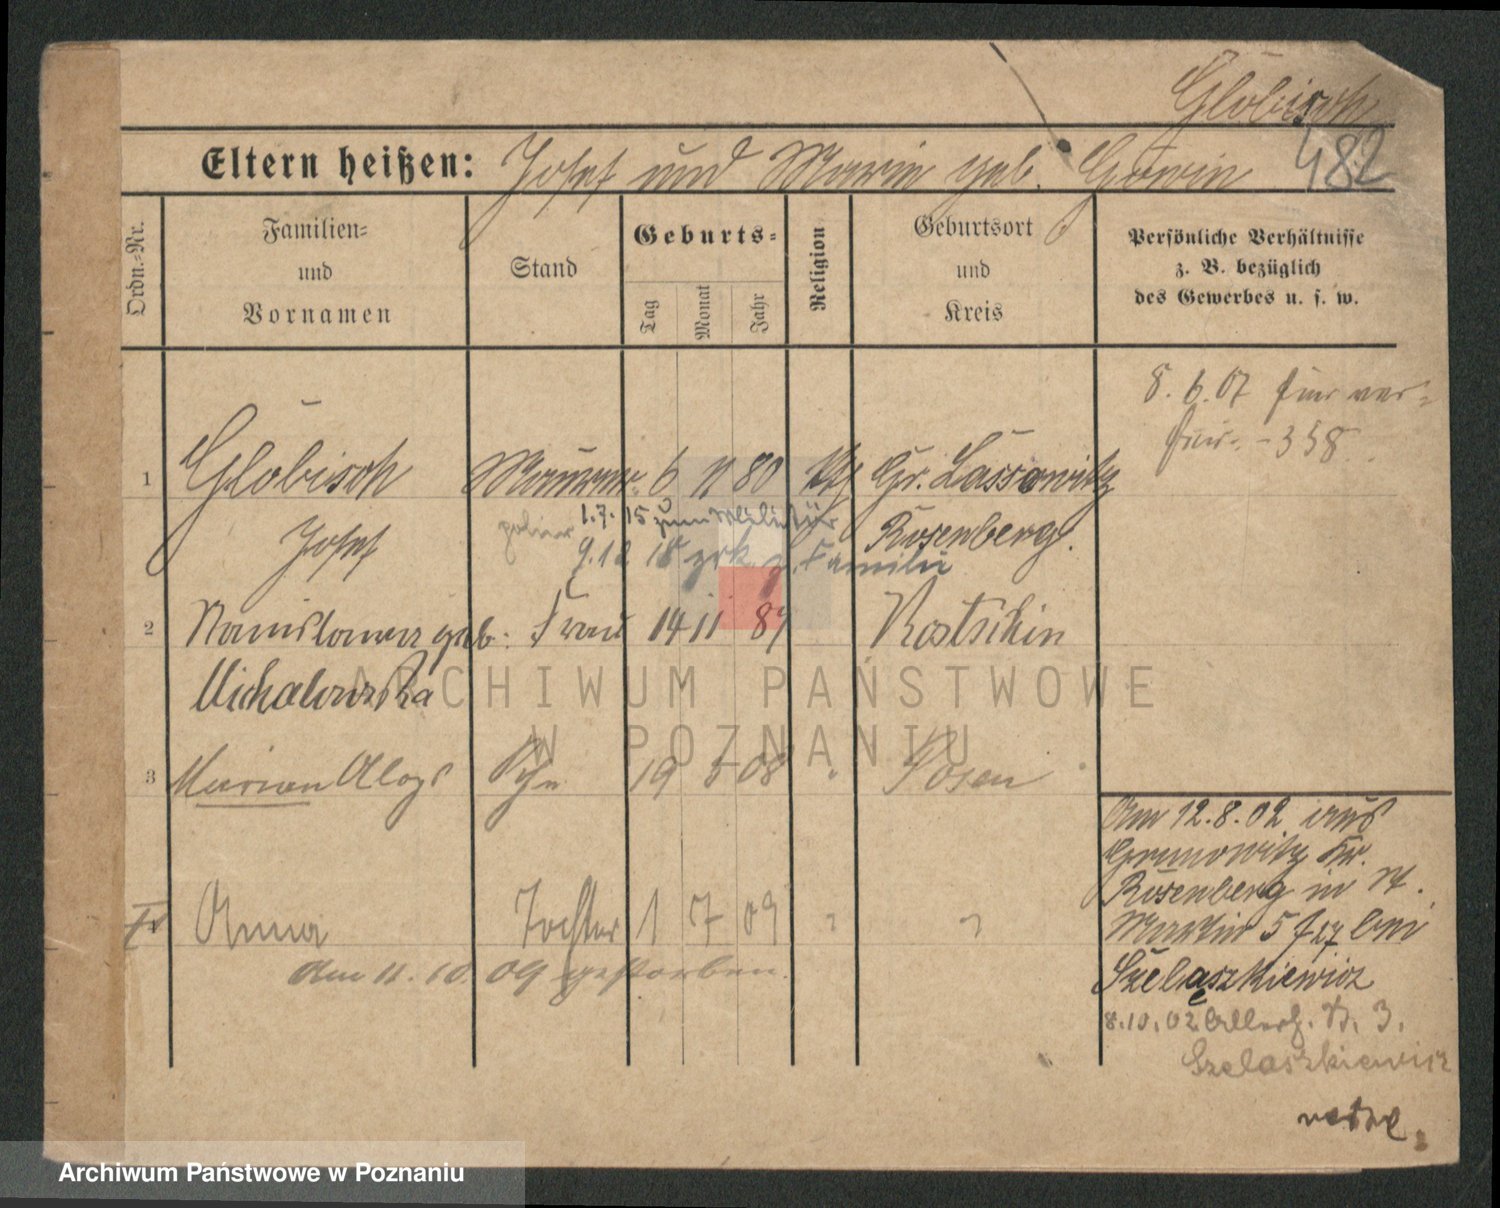 Globisch
482
Eltern heißen: Josef und Marie geb. Gowin
Ordn.-Nr.
Familien- und Vornamen
Stand
Geburts-
Tag
Monat
Jahr
Religion
Geburtsort und Kreis
Persönliche Verhältnisse
z. B. bezüglich
des Gewerbes u. s. w.
8. 6. 07
358
1 Globisch Maurer 6 11 80 Gr. Lassowitz
1.7.15 zum Militär
Josef Rosenberg.
9.12 18 zrk. z. Familie
2 Stanislawa geb. Frau 14 11 89 Kostschin
Michalowska
3 Marian Aloys 19 08 Posen
Am 12.8.02 aus
Kr.
Rosenberg in St.
Martin 57 bei
Szelaszkiewicz
4 Anna Tochter 1 7 09 " "
am 11.10.09 gestorben.
8.10.02 3.
Szelaszkiewicz